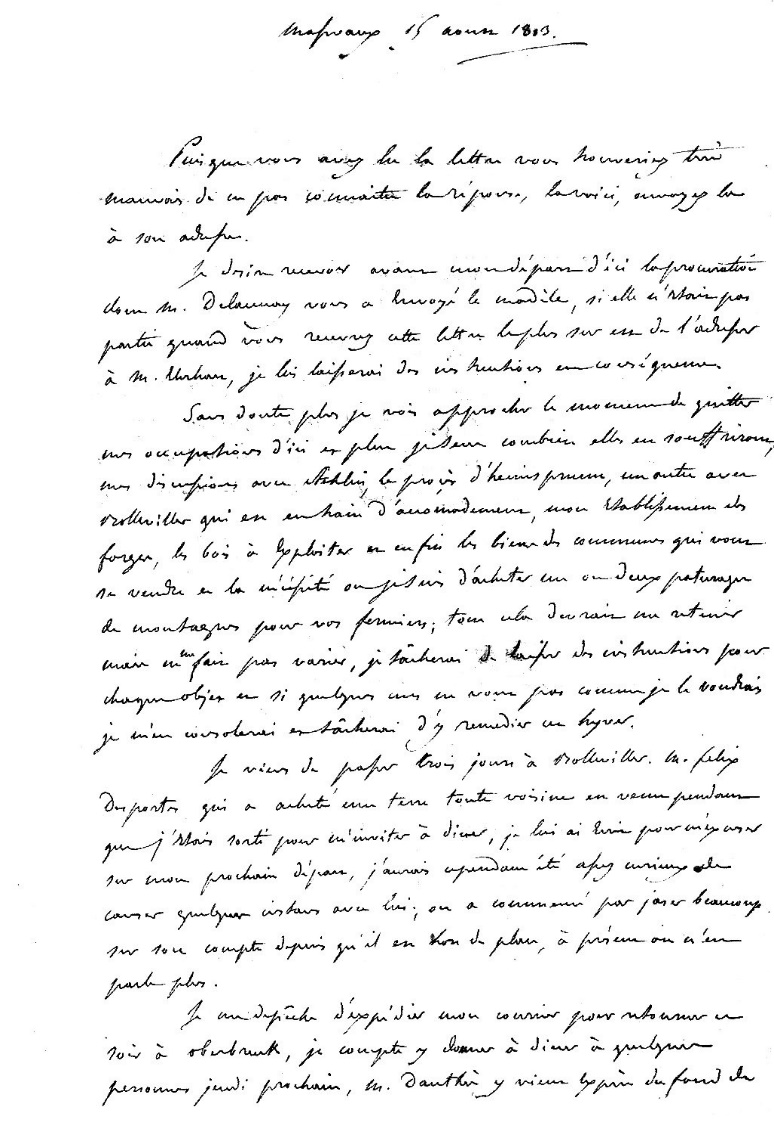 Masvaux 15 aoust 1813.
Puisque vous avez lu la lettre vous trouveriez très
mauvais de ne pas connaitre la réponse, la voici, envoyez la
à son adresse.
Je desire recevoir avant mon départ d'ici la procuration
dont M. Delaunay vous a envoyé le modèle, si elle n'étoit pas
partie quand vous recevrez cette lettre le plus sur est de l'adresser
à M. , je lui laisserai des instructions en conséquence.
Sans doute plus je vois approcher le moment de quitter
mes occupations d'ici et plus je sens combien elles en souffriront,
mes discussions avec , le procès d'heimsprunn, un autre avec
Bollwiller qui est en train d'accomodement, mon établissement des
forges, les bois à exploiter et enfin les biens des communes qui vont
se vendre et la nécéssité où je suis d'acheter un ou deux paturages
de montagnes pour vos fermiers; tout cela devrait me retenir
mais ne me fait pas varier, je tâcherai de laisser des instructions pour
chaque objet et si quelques uns ne vont pas comme je le voudrais
je m'en consolerai et tâcherai d'y remedier cet hyver.
Je viens de passer trois jours à Bollwiller. M. felix
Desportes qui a acheté une terre toute voisine est venu pendant
que j'étois sorti pour m'inviter à diner, je lui ai écrit pour m'excuser
sur mon prochain départ, j'aurais cependant été assez curieux de
causer quelques instans avec lui; on a commencé par jaser beaucoup
sur son compte depuis qu'il est hors de place, à présent on n'en
parle plus.
Je me depêche d'expédier mon courrier pour retourner ce
soir à oberbruck, je compte y donner à diner à quelques
personnes jeudi prochain, M. Danthès y vient exprès du fond de